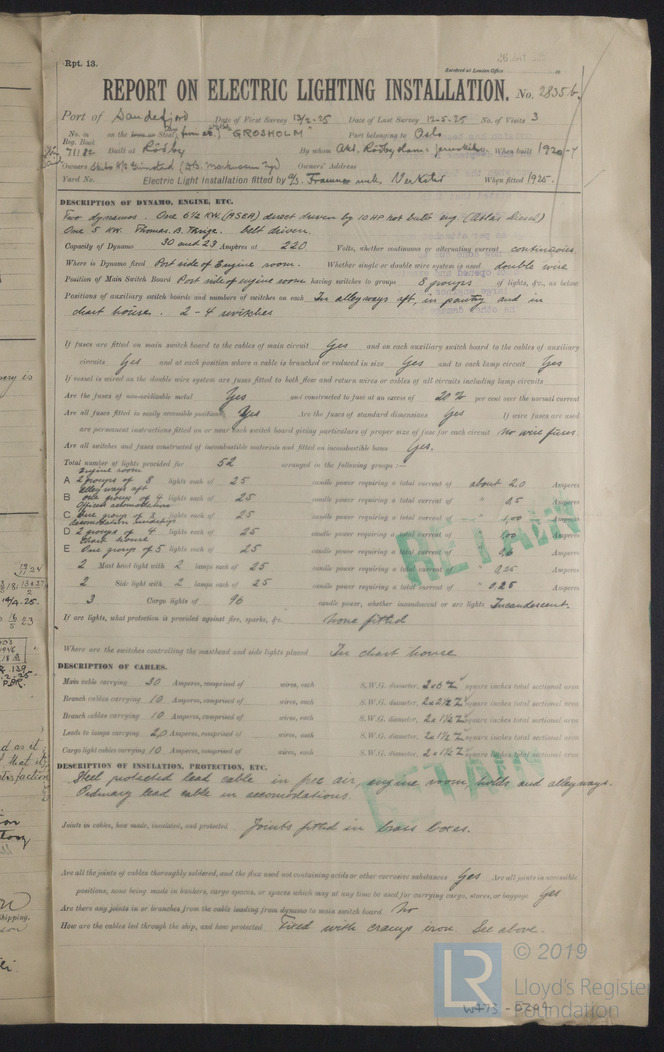 Rpt. 13.
Received at London Office
REPORT ON ELECTRIC LIGHTING INSTALLATION. No. 2835b.
Port of Sandefjord Date of First Survey 13/2-25 Date of Last Survey 12-5-25 No. of Visits 3
No. in Reg. Book on the Steel "GROSHOLM" Port belonging to Oslo
71182 Built at Rödby By whom When built 1920-
Owners Owners' Address
Yard No. Electric Light Installation fitted by A/S Framnæs mek. Værksted When fitted 1925.
DESCRIPTION OF DYNAMO, ENGINE, ETC.
Two dynamos. One 6½ KW. (ASEA) direct driven by 10 HP hot bulb eng. (Diesel)
One 5 KW. Thomas. B. Thrige. belt driven.
Capacity of Dynamo 30 and 23 Amperes at 220 Volts, whether continuous or alternating current continuous
Where is Dynamo fixed Port side of Engine room. Whether single or double wire system is used double wire
Position of Main Switch Board Port side of engine room having switches to groups 8 groups of lights, &c., as below
Positions of auxiliary switch boards and numbers of switches on each In alleyways aft, in pantry and in
chart house. 2 - 4 switches
If fuses are fitted on main switch board to the cables of main circuit Yes and on each auxiliary switch board to the cables of auxiliary
circuits Yes and at each position where a cable is branched or reduced in size Yes and to each lamp circuit Yes
If vessel is wired on the double wire system are fuses fitted to both flow and return wires or cables of all circuits including lamp circuits
Are the fuses of non-oxidizable metal Yes and constructed to fuse at an excess of 20 % per cent over the normal current
Are all fuses fitted in easily accessible positions Yes Are the fuses of standard dimensions Yes If wire fuses are used
are permanent instructions fitted on or near each switch board giving particulars of proper size of fuse for each circuit No wire fuses.
Are all switches and fuses constructed of incombustible materials and fitted on incombustible bases Yes.
Total number of lights provided for 52 arranged in the following groups :—
engine room
A 2 groups of 8 lights each of 25 candle power requiring a total current of about 2.0 Amperes
alleyways aft
B one group of 4 lights each of 25 candle power requiring a total current of " 0,5 Amperes
Officers accomodation
C One group of 8 lights each of 25 candle power requiring a total current of " 1,00 Amperes
accomodation
D 2 groups of 4 lights each of 25 candle power requiring a total current of 1,00 Amperes
Chart house
E One group of 5 lights each of 25 candle power requiring a total current of Amperes
2 Mast head light with 2 lamps each of 25 candle power requiring a total current of " 0,25 Amperes
2 Side light with 2 lamps each of 25 candle power requiring a total current of " 0,25 Amperes
3 Cargo lights of 96 candle power, whether incandescent or arc lights Incandescent
If arc lights, what protection is provided against fire, sparks, &c. None fitted
Where are the switches controlling the masthead and side lights placed In chart house
RETAIN
DESCRIPTION OF CABLES.
Main cable carrying 30 Amperes, comprised of wires, each S.W.G. diameter, square inches total sectional area
Branch cables carrying 10 Amperes, comprised of wires, each S.W.G. diameter, 2 x 2½ square inches total sectional area
Branch cables carrying 10 Amperes, comprised of wires, each S.W.G. diameter, 2 x 1½ square inches total sectional area
Leads to lamps carrying 2,0 Amperes, comprised of wires, each S.W.G. diameter, 2 x 1½ square inches total sectional area
Cargo light cables carrying 10 Amperes, comprised of wires, each S.W.G. diameter, 2 x 1½ square inches total sectional area
DESCRIPTION OF INSULATION, PROTECTION, ETC.
Steel protected lead cable in free air, engine room, holds and alleyways.
Ordinary lead cable in accomodations.
RETAIN
Joints in cables, how made, insulated, and protected Joints fitted in brass boxes.
Are all the joints of cables thoroughly soldered, and the flux used not containing acids or other corrosive substances Yes Are all joints in accessible
positions, none being made in bunkers, cargo spaces, or spaces which may at any time be used for carrying cargo, stores, or baggage Yes
Are there any joints in or branches from the cable leading from dynamo to main switch board No
How are the cables led through the ship, and how protected Fixed with cramp iron. See above.
© 2019
LR Lloyd's Register
Foundation
W473-0209